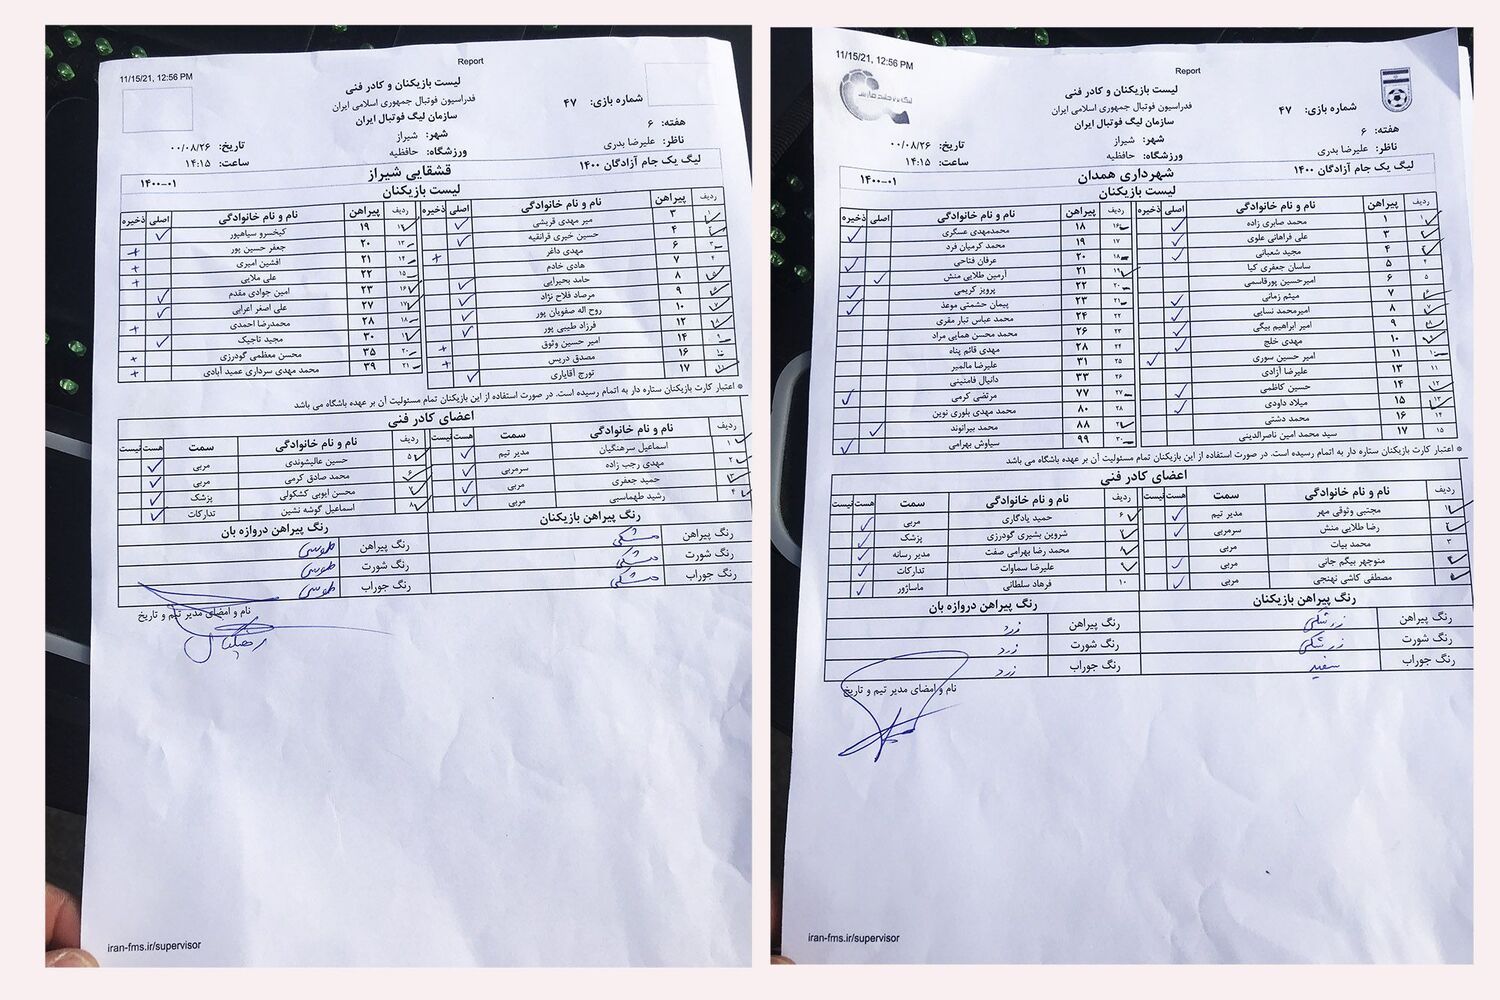 Report
11/15/21, 12:56 PM
لیست بازیکنان و کادر فنی
فدراسیون فوتبال جمهوری اسلامی ایران
شماره بازی: ۴۷
سازمان لیگ فوتبال ایران
هفته: ۶
شهر: شیراز
تاریخ: ۰۰/۰۸/۲۶
ناظر: علیرضا بدری
ورزشگاه: حافظیه
ساعت: ۱۴:۱۵
لیگ یک جام آزادگان ۱۴۰۰
قشقایی شیراز
۱۴۰۰-۰۱
لیست بازیکنان
ردیف پیراهن نام و نام خانوادگی اصلی ذخیره ردیف پیراهن نام و نام خانوادگی اصلی ذخیره
۱ ۳ میر مهدی قریشی
۲ ۴ حسین خیری قرانقیه
۳ ۶ مهدی داغر
۴ ۷ هادی خادم
۵ ۸ حامد بحیرایی
۶ ۹ مرصاد فلاح نژاد
۷ ۱۰ روح اله صفویان پور
۸ ۱۲ فرزاد طیبی پور
۹ ۱۴ امیر حسین وثوق
۱۰ ۱۶ مصدق دریس
۱۱ ۱۷ تورج آقایاری
۱۲ ۱۹ کیخسرو سیاهپور
۱۳ ۲۰ جعفر حسین پور
۱۴ ۲۱ افشین امیری
۱۵ ۲۲ علی ملایی
۱۶ ۲۳ امین جوادی مقدم
۱۷ ۲۷ علی اصغر اعرابی
۱۸ ۲۸ محمدرضا احمدی
۱۹ ۳۰ مجید تاجیک
۲۰ ۳۵ محسن معظمی گودرزی
۲۱ ۳۹ محمد مهدی سرداری عمید آبادی
* اعتبار کارت بازیکنان ستاره دار به اتمام رسیده است. در صورت استفاده از این بازیکنان تمام مسئولیت آن بر عهده باشگاه می باشد
اعضای کادر فنی
ردیف نام و نام خانوادگی سمت هست نیست ردیف نام و نام خانوادگی سمت هست نیست
۱ اسماعیل سرهنگیان مدیر تیم
۲ مهدی رجب زاده سرمربی
۳ حمید جعفری مربی
۴ رشید طهماسبی مربی
۵ حسین عالیشوندی مربی
۶ محمد صادق کرمی مربی
۷ محسن ایوبی کشکولی پزشک
۸ اسماعیل گوشه نشین تدارکات
رنگ پیراهن بازیکنان
رنگ پیراهن دروازه بان
رنگ پیراهن مشکی رنگ پیراهن طوسی
رنگ شورت مشکی رنگ شورت طوسی
رنگ جوراب مشکی رنگ جوراب طوسی
نام و امضای مدیر تیم و تاریخ
iran-fms.ir/supervisor
Report
11/15/21, 12:56 PM
لیست بازیکنان و کادر فنی
فدراسیون فوتبال جمهوری اسلامی ایران
شماره بازی: ۴۷
سازمان لیگ فوتبال ایران
هفته: ۶
شهر: شیراز
تاریخ: ۰۰/۰۸/۲۶
ناظر: علیرضا بدری
ورزشگاه: حافظیه
ساعت: ۱۴:۱۵
لیگ یک جام آزادگان ۱۴۰۰
شهرداری همدان
۱۴۰۰-۰۱
لیست بازیکنان
ردیف پیراهن نام و نام خانوادگی اصلی ذخیره ردیف پیراهن نام و نام خانوادگی اصلی ذخیره
۱ ۱ محمد صابری زاده
۲ ۳ علی فراهانی علوی
۳ ۴ مجید شعبانی
۴ ۵ ساسان جعفری کیا
۵ ۶ امیرحسین پورقاسمی
۶ ۷ میثم زمانی
۷ ۸ امیرمحمد نسایی
۸ ۹ امیر ابراهیم بیگی
۹ ۱۰ مهدی خلج
۱۰ ۱۱ امیر حسین سوری
۱۱ ۱۳ علیرضا آزادی
۱۲ ۱۴ حسین کاظمی
۱۳ ۱۵ میلاد داودی
۱۴ ۱۶ محمد دشتی
۱۵ ۱۷ سید محمد امین ناصرالدینی
۱۶ ۱۸ محمدمهدی عسگری
۱۷ ۱۹ محمد کرمیان فرد
۱۸ ۲۰ عرفان فتاحی
۱۹ ۲۱ آرمین طلایی منش
۲۰ ۲۲ پرویز کریمی
۲۱ ۲۳ پیمان حشمتی موعد
۲۲ ۲۴ محمد عباس تبار مقری
۲۳ ۲۶ محمد محسن همایی مراد
۲۴ ۲۸ مهدی قائم پناه
۲۵ ۳۱ علیرضا مالمیر
۲۶ ۳۳ دانیال فامنینی
۲۷ ۷۷ مرتضی کرمی
۲۸ ۸۰ محمد مهدی بلوری نوین
۲۹ ۸۸ محمد بیرانوند
۳۰ ۹۹ سیاوش بهرامی
* اعتبار کارت بازیکنان ستاره دار به اتمام رسیده است. در صورت استفاده از این بازیکنان تمام مسئولیت آن بر عهده باشگاه می باشد
اعضای کادر فنی
ردیف نام و نام خانوادگی سمت هست نیست ردیف نام و نام خانوادگی سمت هست نیست
۱ مجتبی وثوقی مهر مدیر تیم
۲ رضا طلایی منش سرمربی
۳ محمد بیات مربی
۴ منوچهر بیگم جانی مربی
۵ مصطفی کاشی نهنجی مربی
۶ حمید یادگاری مربی
۷ شروین بشیری گودرزی پزشک
۸ محمد رضا بهرامی صفت مدیر رسانه
۹ علیرضا سماوات تدارکات
۱۰ فرهاد سلطانی ماساژور
رنگ پیراهن بازیکنان
رنگ پیراهن دروازه بان
رنگ پیراهن زرشکی رنگ پیراهن زرد
رنگ شورت زرشکی رنگ شورت زرد
رنگ جوراب سفید رنگ جوراب زرد
نام و امضای مدیر تیم و تاریخ
iran-fms.ir/supervisor